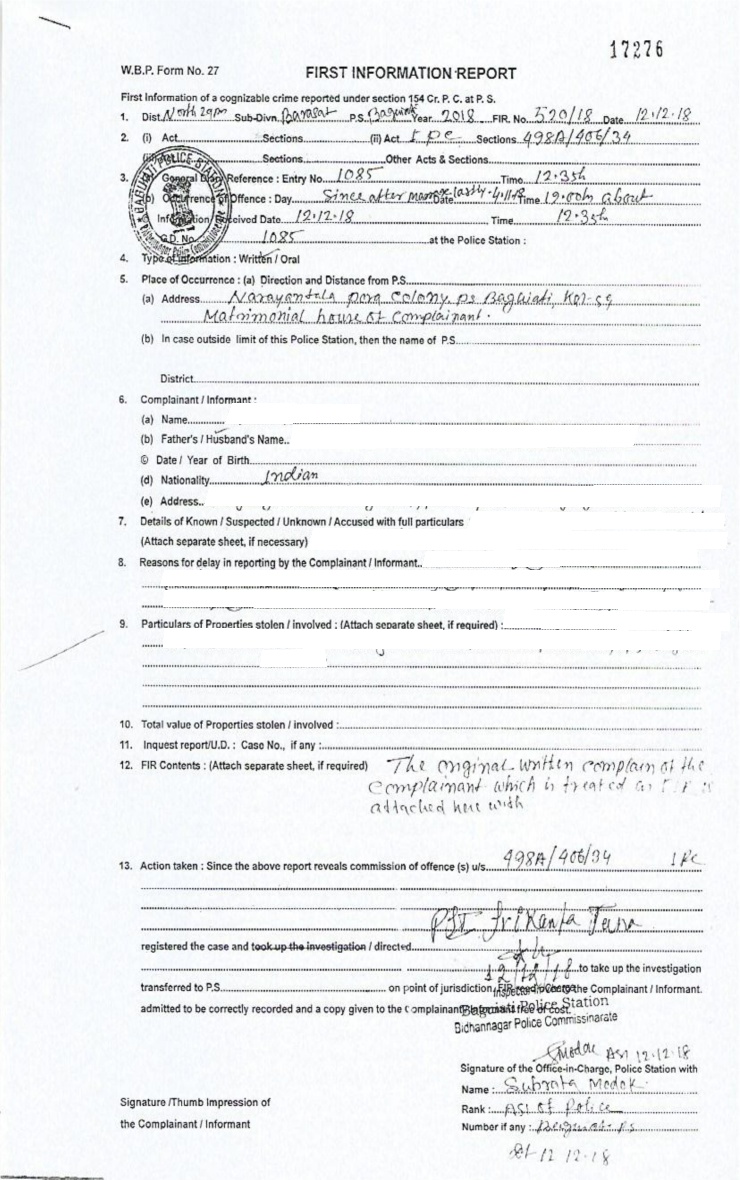 17276
W.B.P. Form No. 27
FIRST INFORMATION REPORT
First Information of a cognizable crime reported under section 154 Cr. P. C. at P. S.
1. Dist. North 24pm Sub-Divn. Barasat P.S. Baguiati Year 2018 FIR. No. 520/18 Date 12.12.18
2. (i) Act Sections (ii) Act I pc Sections 498A/406/34
(iii) Sections Other Acts & Sections
3. General Diary Reference : Entry No. 1085 Time 12.35h
(b) Occurrence of Offence : Day Since after marriage lastly Date Time 19.00h about
Information Received Date 12.12.18 Time 12.35h
G.D. No. 1085 at the Police Station :
4. Type of Information : Written / Oral
5. Place of Occurrence : (a) Direction and Distance from P.S.
(a) Address Narayantala para Colony, ps Baguiati, Kol-59
Matrimonial house of complainant.
(b) In case outside limit of this Police Station, then the name of P.S.
District
6. Complainant / Informant :
(a) Name
(b) Father's / Husband's Name..
© Date / Year of Birth
(d) Nationality Indian
(e) Address..
7. Details of Known / Suspected / Unknown / Accused with full particulars
(Attach separate sheet, if necessary)
8. Reasons for delay in reporting by the Complainant / Informant..
9. Particulars of Properties stolen / involved : (Attach separate sheet, if required) :
10. Total value of Properties stolen / involved :
11. Inquest report/U.D. : Case No., if any :
12. FIR Contents : (Attach separate sheet, if required) The original written complain of the
complainant which is treated as F.I.R is
attached here with
13. Action taken : Since the above report reveals commission of offence (s) u/s. 498A/406/34 IPC
PSI Srikanta
registered the case and took up the investigation / directed
12/12/18 to take up the investigation
transferred to P.S. on point of jurisdiction, FIR read over to the Complainant / Informant.
Inspector-in-Charge
admitted to be correctly recorded and a copy given to the Complainant / Informant free of cost.
Baguiati Police Station
Bidhannagar Police Commissinarate
ASI 12.12.18
Signature of the Office-in-Charge, Police Station with
Name : Subrata Modok
Signature /Thumb Impression of
Rank : ASI of Police
the Complainant / Informant
Number if any : Baguiati P.S
Dt 12 12.18